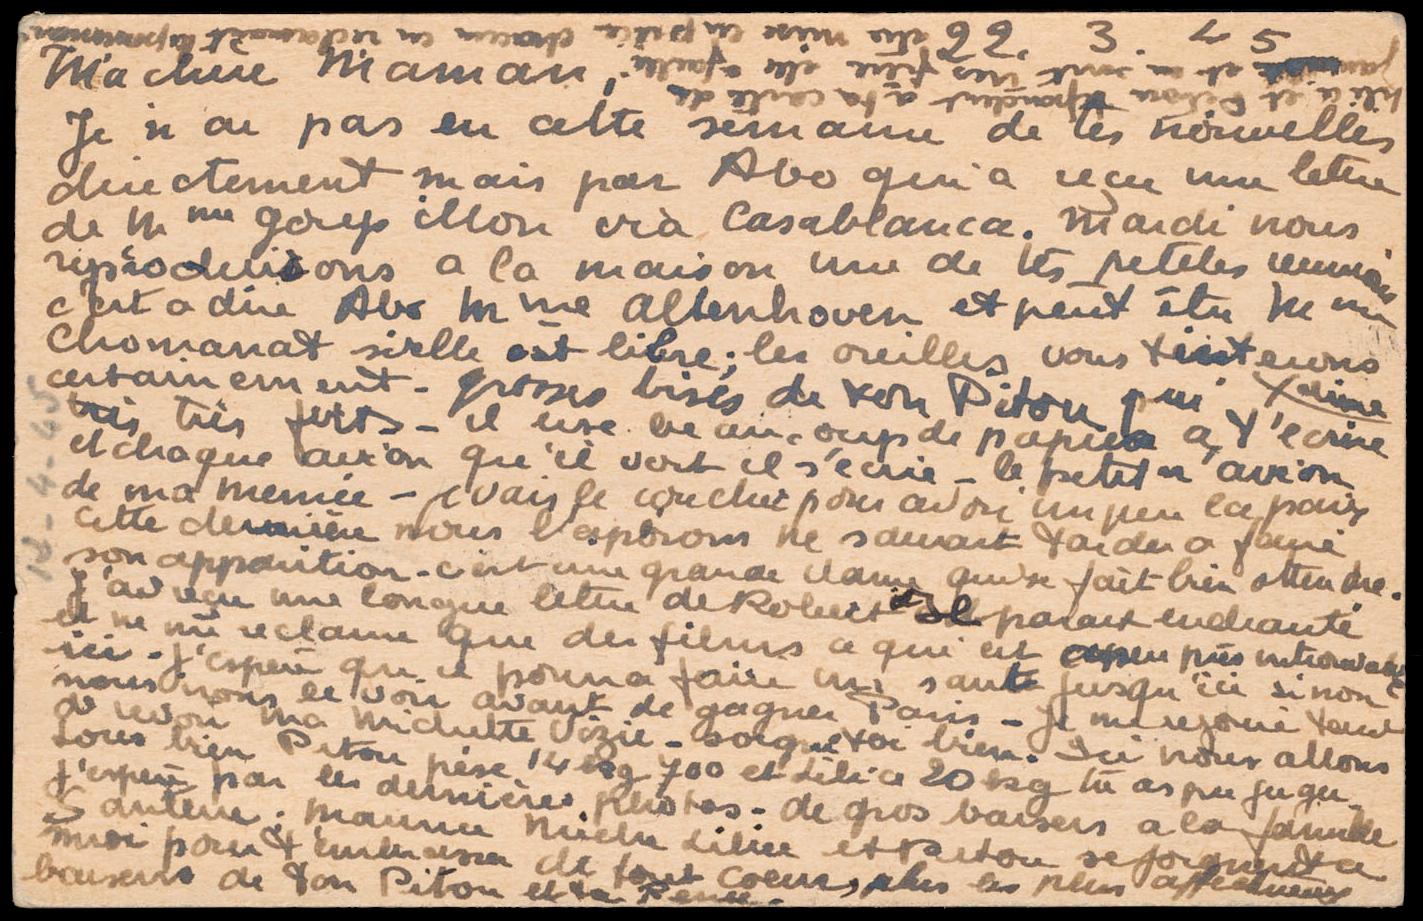 22. 3. 45
Ma chère Maman,
Je n ai pas eu cette semaine de tes nouvelles
directement mais par Abo qui a reçu une lettre
de Mme via Casablanca. Mardi nous
reproduisons a la maison une de tes petites
c'est a dire Abo Mme Altenhoven et peut être Mme
Chomanat si elle est libre; les oreilles vous tinterons
certainement - grosses bises de ton Pitou qui t'aime
très très fort - il use beaucoup de papier a t'ecrire
et chaque avion qu'il voit il s'écrie - le petit avion
de ma memée - vais le coucher pour avoir un peu la paix
cette dernière nous l'espérons ne saurait tarder a faire
son apparition - c'est une grande dame qui se fait bien attendre.
J'ai reçu une longue lettre de Robert il parait enchanté
et ne me reclame que des films ce qui est a peu près introuvable
ici - J'espère qu il pourra faire un saut jusqu'ici sinon
nous irons le voir avant de gagner Paris - Je me rejouie tant
de revoir ma Michette - soigne toi bien. Ici nous allons
tous bien Pitou pèse 14 kg 700 et Lilia 20 kg tu as pu juger
j'espère par les dernières photos - de gros baisers a la famille
Santene. Maurice Lilia et Pitou se joignent a
moi pour t'embrasser de tout coeur, plus les plus affectueux
baisers de ton Pitou et ta Renée.
Lilia et Pitou repondent a ta carte de
et en sont très fière elle a failli
etre mise en pièce chacun en reclamant la
12-4-45